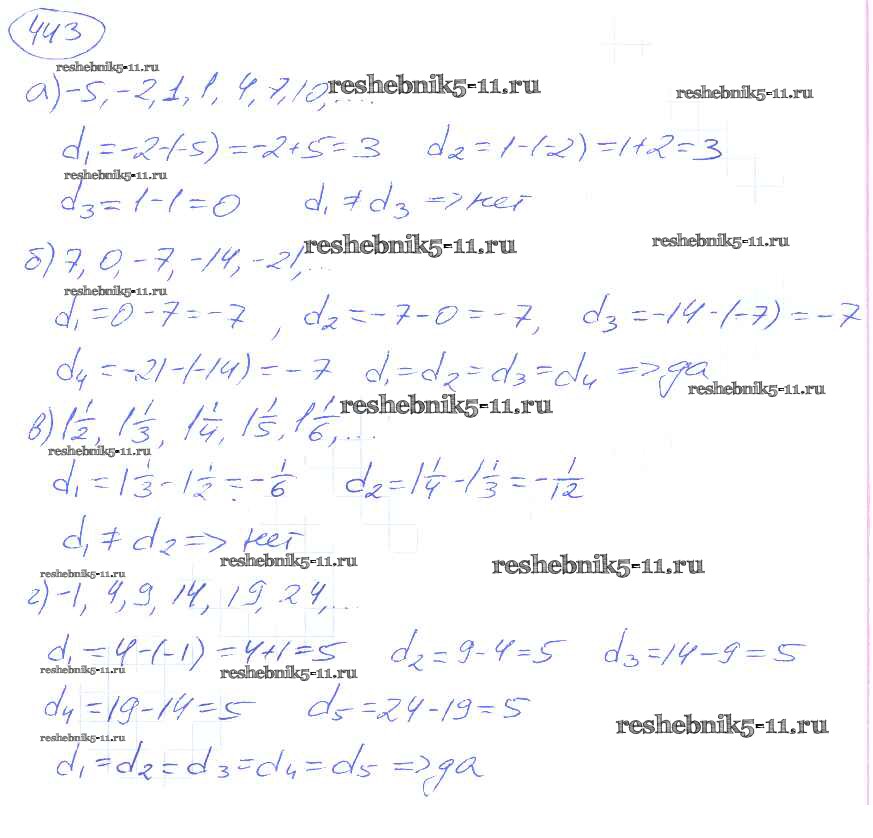 443
reshebnik5-11.ru
а) -5, -2, 1, 1, 4, 7, 10, .... reshebnik5-11.ru reshebnik5-11.ru
d₁ = -2-(-5) = -2+5 = 3 d₂ = 1-(-2) = 1+2 = 3
reshebnik5-11.ru
d₃ = 1-1 = 0 d₁ ≠ d₃ => нет
reshebnik5-11.ru reshebnik5-11.ru
б) 7, 0, -7, -14, -21, ...
reshebnik5-11.ru
d₁ = 0-7 = -7 , d₂ = -7-0 = -7, d₃ = -14-(-7) = -7
d₄ = -21-(-14) = -7 d₁ = d₂ = d₃ = d₄ => да
reshebnik5-11.ru
reshebnik5-11.ru
в) 1 1/2, 1 1/3, 1 1/4, 1 1/5, 1 1/6, ...
reshebnik5-11.ru
d₁ = 1 1/3 - 1 1/2 = -1/6 d₂ = 1 1/4 - 1 1/3 = -1/12
d₁ ≠ d₂ => нет
reshebnik5-11.ru reshebnik5-11.ru
reshebnik5-11.ru
г) -1, 4, 9, 14, 19, 24, ...
d₁ = 4-(-1) = 4+1 = 5 d₂ = 9-4 = 5 d₃ = 14-9 = 5
reshebnik5-11.ru reshebnik5-11.ru
d₄ = 19-14 = 5 d₅ = 24-19 = 5
reshebnik5-11.ru
reshebnik5-11.ru
d₁ = d₂ = d₃ = d₄ = d₅ => да